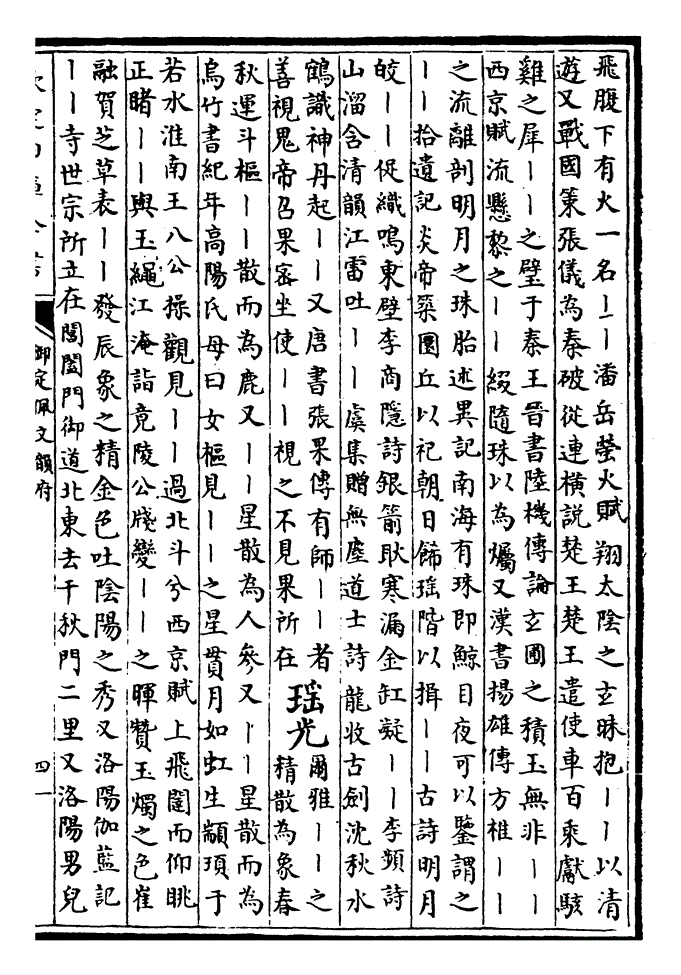 飛腹下有火一名丨丨潘岳螢火賦翔太陰之玄昧抱丨丨以清
遊又戰國策張儀為秦破從連横説楚王楚王遣使車百乘獻駭
雞之犀丨丨之璧于秦王晉書陸機傳論玄圃之積玉無非丨丨
西京賦流懸黎之丨丨綴隨珠以為燭又漢書揚雄傳方椎丨丨
之流離剖明月之珠胎述異記南海有珠即鯨目夜可以鑒謂之
丨丨拾遺記炎帝築圜丘以祀朝日飾瑶階以揖丨丨古詩明月
皎丨丨促織鳴東壁李商隱詩銀箭耿寒漏金缸凝丨丨李頻詩
山溜含清韻江雷吐丨丨虞集贈無塵道士詩龍收古劍沈秋水
鶴識神丹起丨丨又唐書張果傳有師丨丨者
善視鬼帝召果密坐使丨丨視之不見果所在
瑶光
爾雅丨丨之
精散為象春
秋運斗樞丨丨散而為鹿又丨丨星散為人參又丨丨星散而為
烏竹書紀年高陽氏母曰女樞見丨丨之星貫月如虹生顓頊于
若水淮南王八公操觀見丨丨過北斗兮西京賦上飛闥而仰眺
正睹丨丨與玉繩江淹詣竟陵公牋變丨丨之暉贊玉燭之色崔
融賀芝草表丨丨發辰象之精金色吐陰陽之秀又洛陽伽藍記
丨丨寺世宗所立在閶闔門御道北東去千秋門二里又洛陽男兒
御定佩文韻府
四一